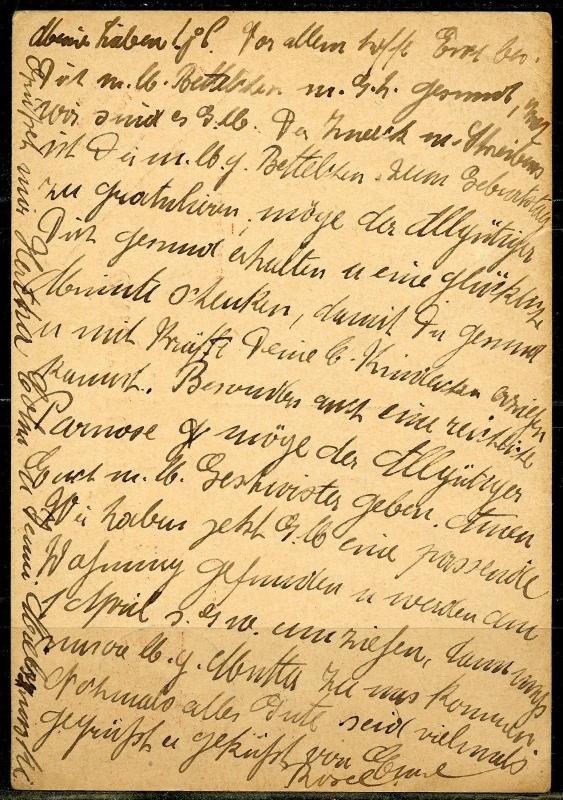 Meine lieben lgl. Vor allem hofft Euch bes.
Dich m. lb. Bettelchen m. G. h. gesund, auch
wir sind es G. lb. Der Zweck m. Schreibens
ist Dir m. lb. g. Bettelchen zum Geburtstag
zu gratulieren, möge der Allgütiger
Dich gesund erhalten u eine glückliche
schenken, damit Du gesund
u mit Kräfte Deine l. Kinderchen erziehen
kannst. Besonders auch eine reichliche
Parnose möge der Allgütiger
Euch m. lb. Geschwister geben. Amen
Wir haben jetzt G. lb eine passende
Wohnung gefunden u werden am
1 April s. G. w. umziehen, dann
unsre lb. g. Mutter zu uns kommen
Nochmals alles Gute seid vielmals
gegrüßt u geküßt von Eure
Rosel
Grüßet mir Hertha